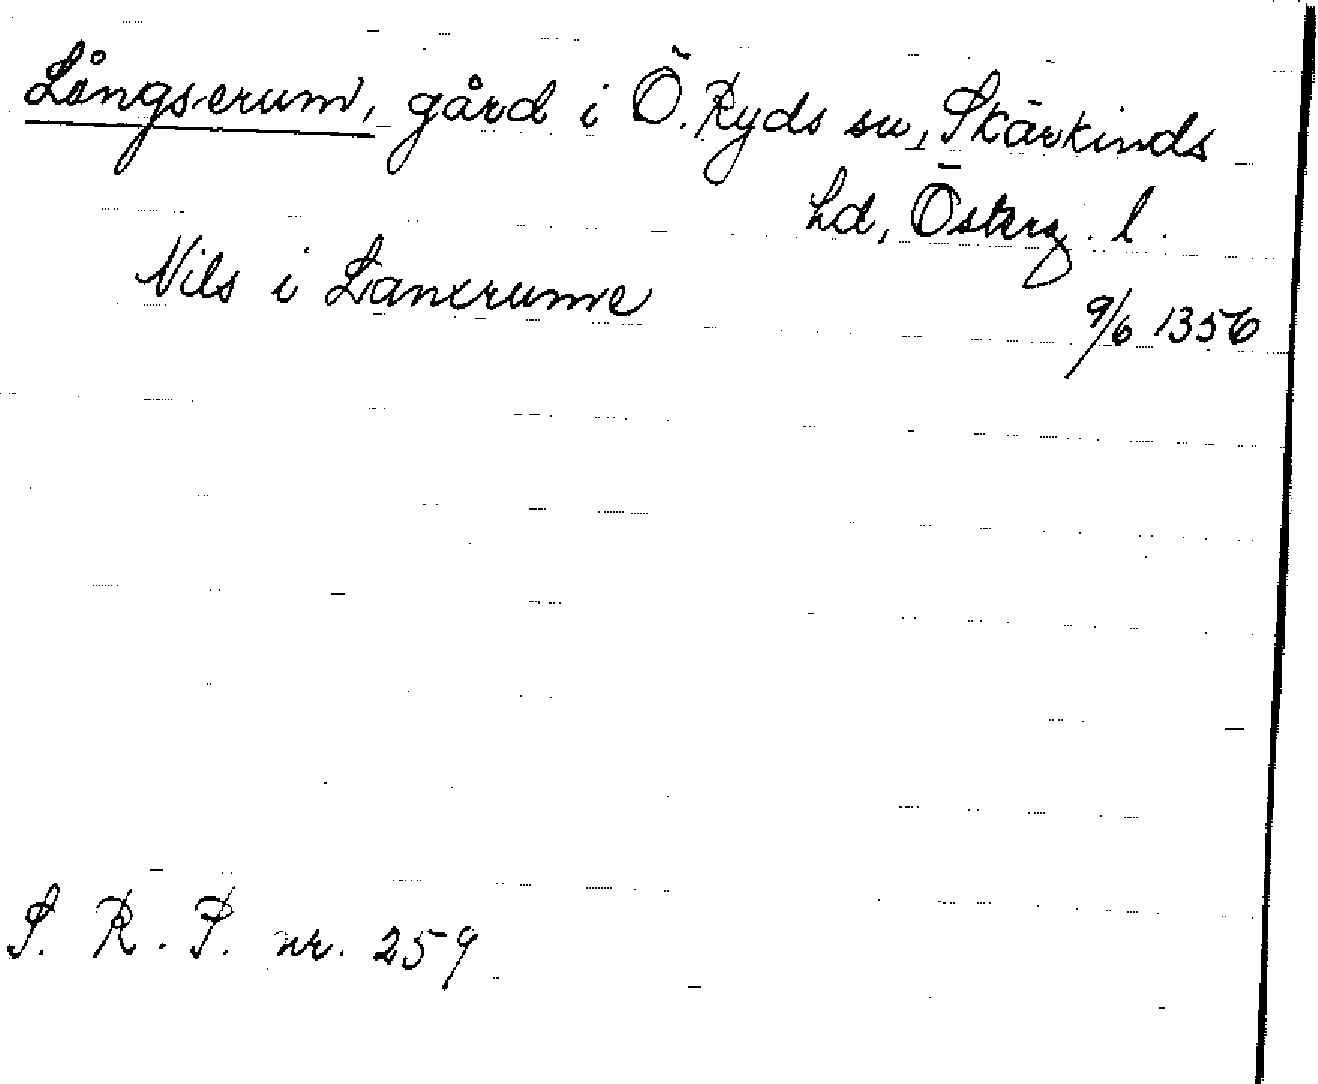 Långserum, gård i Ö. Ryds sn, Skärkinds
hd, Österg. l.
Nils i Lanxrume
9/6 1356
S. R. P. nr. 259